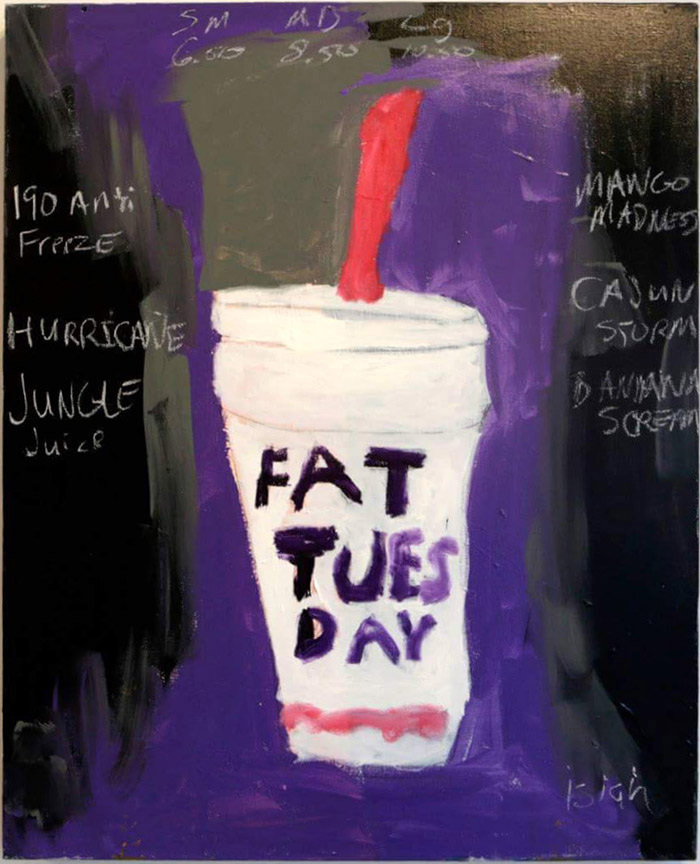 SM MD Lg
6.00 8.50 10.50
190 Anti
FreezE
HURRICANE
JUNGLE
Juice
MANGO
MADNES
CAJUN
STORM
BANANA
SCREAM
FAT
TUES
DAY